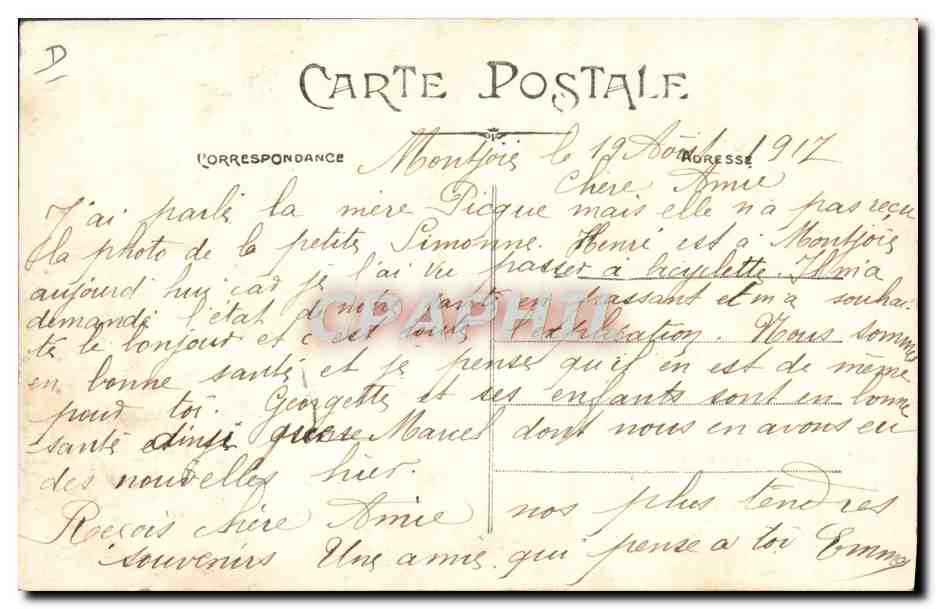 D
CARTE POSTALE
CORRESPONDANCE
ADRESSE
Montjoie le 19 Août 1917
Chère Amie
J'ai parlé la mère Picque mais elle n'a pas reçu
la photo de la petite Simonne. Henri est à Montjoie
aujourd'hui car je l'ai vu passer à bicyclette. Il m'a
demandé l'état de notre santé en passant et m'a souhai-
té le bonjour et c'est toute explication. Nous sommes
en bonne santé et je pense qu'il en est de même
pour toi. Georgette et ses enfants sont en bonne
santé ainsi que Marcel dont nous en avons eu
des nouvelles hier.
Reçois chère Amie nos plus tendres
souvenirs Une amie qui pense a toi Emma
CPARHIL